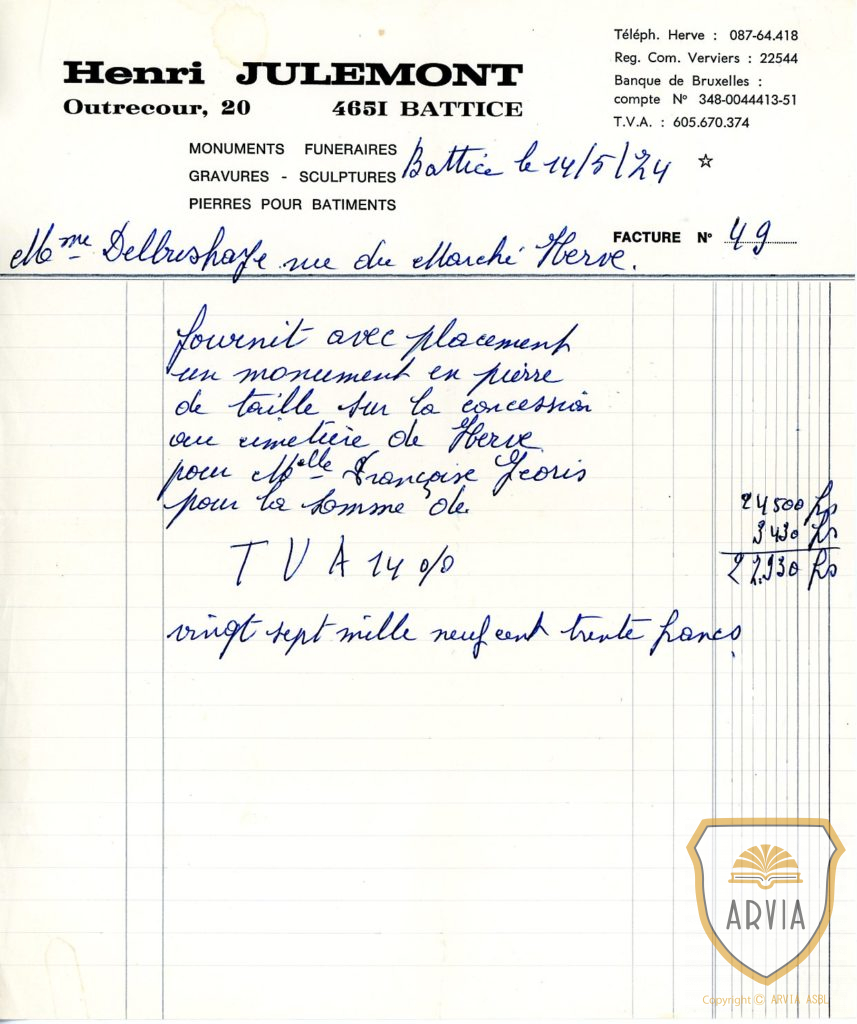 Henri JULEMONT
Outrecour, 20 4651 BATTICE
Téléph. Herve : 087-64.418
Reg. Com. Verviers : 22544
Banque de Bruxelles :
compte N° 348-0044413-51
T.V.A. : 605.670.374
MONUMENTS FUNERAIRES
GRAVURES - SCULPTURES
PIERRES POUR BATIMENTS
Battice le 14/5/74 ☆
FACTURE N° 49
Mme rue du Marché Herve.
fournit avec placement
un monument en pierre
de taille sur la concession
au cimetière de Herve
pour Melle Françoise Georis
pour la somme de 24500 frs
3430 frs
T V A 14 % 27.930 frs
vingt sept mille neuf cent trente francs
ARVIA
Copyright © ARVIA ASBL